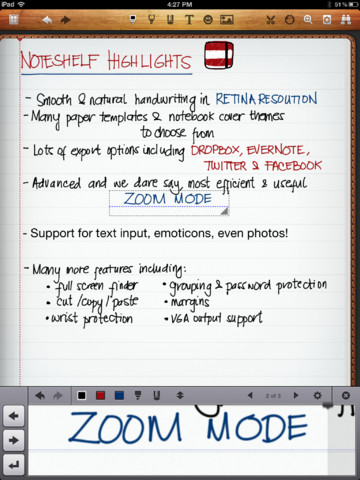 iPad
4:27 PM
NOTESHELF HIGHLIGHTS
- Smooth & natural handwriting in RETINA RESOUTION
- Many paper templates & notebook cover themes
to choose from
- Lots of export options including DROPBOX, EVERNOTE,
TWITTER & FACEBOOK
- Advanced and we dare say, most efficient & useful
ZOOM MODE
- Support for text input, emoticons, even photos!
- Many more features including:
• full screen finder • grouping & password protection
• cut/copy/paste • margins
• wrist protection • VGA output support
2 of 3
ZOOM MODE